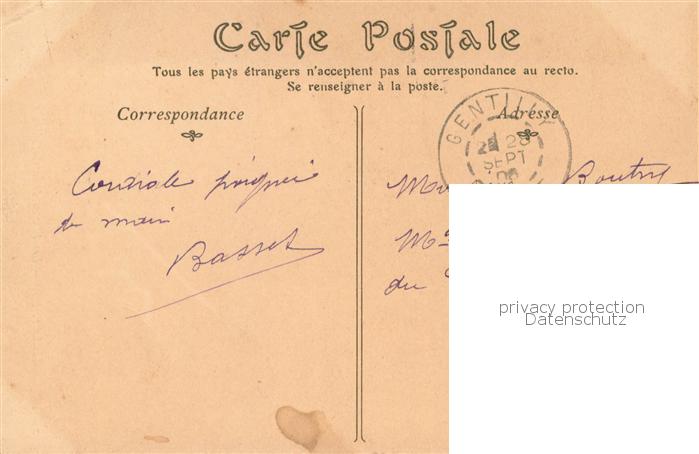 Carte Postale
Tous les pays étrangers n'acceptent pas la correspondance au recto.
Se renseigner à la poste.
Correspondance
Cordiale poignée
de main
Basset
Adresse
GENTILLY
28
SEPT
du
privacy protection
Datenschutz